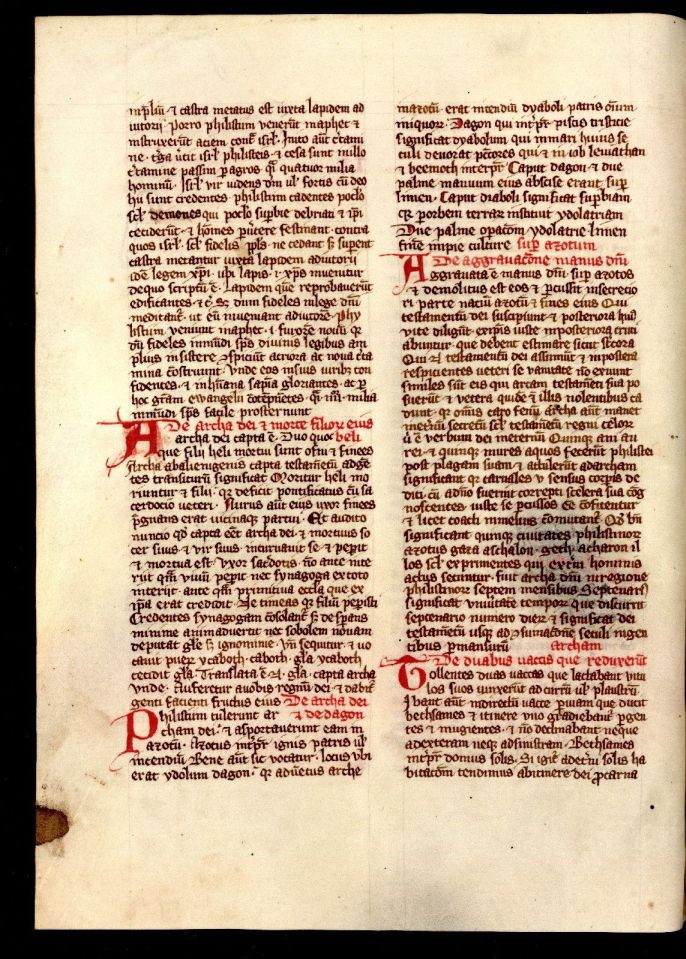 et castra metatus est iuxta lapidem ad
iutorii porro philistiim venerut maphet ⁊
instruxerut aciem
philisteis ⁊ cesa sunt
passim p agros quatuor milia
hominu. Isrl vir videns dm fortis cu deo
sunt credentes philistiim cadentes poclo
demones qui poclo supbie debriati ⁊
ceciderut ⁊ homines festinant contra
quos isrl fidelis ne cedant supent
castra metantur iuxta lapidem adiutorii
idem legem xpi ubi lapis xps inuenitur
dequo scriptu e. Lapidem que reprobauerut
edificantes dum fideles inlege dni
meditant ut eu inueniant adiutore. Phy
listum veniunt maphet i furore
fideles inmudi sps diuinis legibus am
plius insistere
mina costruunt unde eos insuis uirib con
fidentes ⁊ inhumana sapia gloriantes
hoc gram ewangelii milia
inmudi sps facile prosternunt
De archa dei ⁊ morte filior eius
Archa dei capta e. Duo quoc heli
que filii heli mortui sunt ofni ⁊ finees
Archa abalienigenis capta testametu adge
tes transituru significat Moritur heli mo
riuntur ⁊ filii qr deficit pontificatus cu sa
cerdocio ueteri. Nurus aut eius uxor finees
pgnans erat uicinaqz partui. Et audito
nuncio qd capta eet archa dei ⁊ mortuus so
cer suus ⁊ vir suus incuruauit se ⁊ pepit
⁊ mortua est. Vxor sacdotis no ante inte
riit qm viuu pepit nec synagoga extoto
interiit ante qm primitiua eccla que ex
ipa erat credidit Ne timeas qr filiu pepisti
Credentes synagogam cosolant s de spans
minime animaduerit nec sobolem nouam
deputat gle s ignominie. Vn sequitur ⁊ uo
cauit puer ycaboth. caboth. gla ycaboth
cecidit gla. Translata e gla. capta archa
vnde. Auferetur auobis regnu dei ⁊ dabit
genti facienti fructus eius De archa dei
Philistiim tulerunt ar ⁊ de dagon
cham dei ⁊ asportauerunt eam in
azotu. Azotus interpr ignis patris ul
incendiu Bene aut sic vocatur. locus vbi
erat ydolum dagon qr aduetus arche
inazotu erat incendiu dyaboli patris oium
iniquor. Dagon qui interpr piscis tristicie
significat dyabolum qui inmari huius se
culi deuorat pctores qui ⁊ in iob leuiathan
⁊ beemoth interpr Caput dagon ⁊ due
palme manuum eius abscise erant sup
limen. Caput diaboli significat supbiam
qr porbem terrar instituit ydolatriam
Due palme opacom ydolatrie limen
fine impie culture sup azotum
De aggrauacone manus dni
Aggrauata e manus dni sup azotos
⁊ demolitus est eos ⁊ pcussit insecretio
ri parte natiu azotu ⁊ fines eius Qui
testamentu dei suscipiunt ⁊ posteriora hui
vite diligut exipis iuste inposteriora cruci
abuntur que debent estimare sicut stcora
Qui testamentu dei assumut ⁊ inpostera
respicientes ueteri se uanitate no exuunt
similes sut eis qui arcam testameti sua po
suerut ⁊ vetera quide illis nolentibus ca
dunt qr omis caro fenu archa aut manet
internu secretu testametu regni celor
u e verbum dei eternu Quinqz ani au
rei ⁊ quinqz mures aquos fecerut philistei
post plagam suam ⁊ attulerut adarcham
significant qr carnales v sensus corpis de
diti cu adno fuerint correpti scelera sua cog
noscentes iuste se pcussos ee cofitentur
⁊ licet coacti inmelius comutant Qd vn
significant quinqz ciuitates philistinor
azotus gaza aschalon geth acharon il
los exprimentes qui exteri hominis
actus secuntur fuit archa dni inregione
philistinor septem mensibus Septenari
significat vniuitate tempor que discurrit
septenario numero dier ⁊ significat dei
testametu usqz adsumacone seculi ingen
tibus pmansuru archam
De duabus uaccis que reduxerut
Tollentes duas vaccas que lactabant vitu
los suos iunxerut adcurru ul plaustru
Ibant aut indirectu vacce puiam que ducit
bethsames ⁊ itinere vno gradiebant pgen
tes ⁊ mugientes ⁊ no declinabant neque
adexteram neqz adsinistram. Bethsames
interpr domus solis. Si igit adetni solis ha
bitacom tendimus abitinere dei pcarna